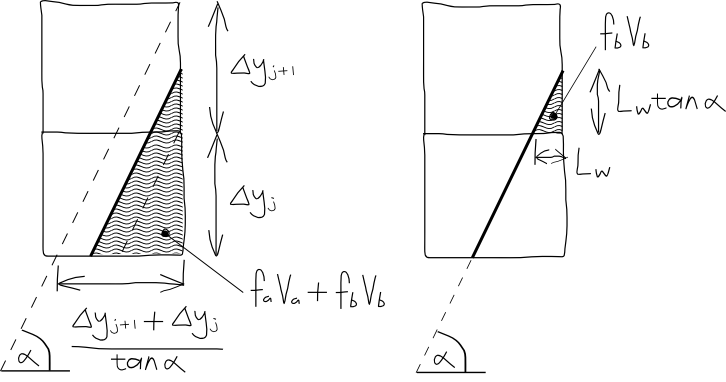 Δy_{j+1}
Δy_j
f_a V_a + f_b V_b
Δy_{j+1} + Δy_j
tan α
α
f_b V_b
L_w tan α
L_w
α